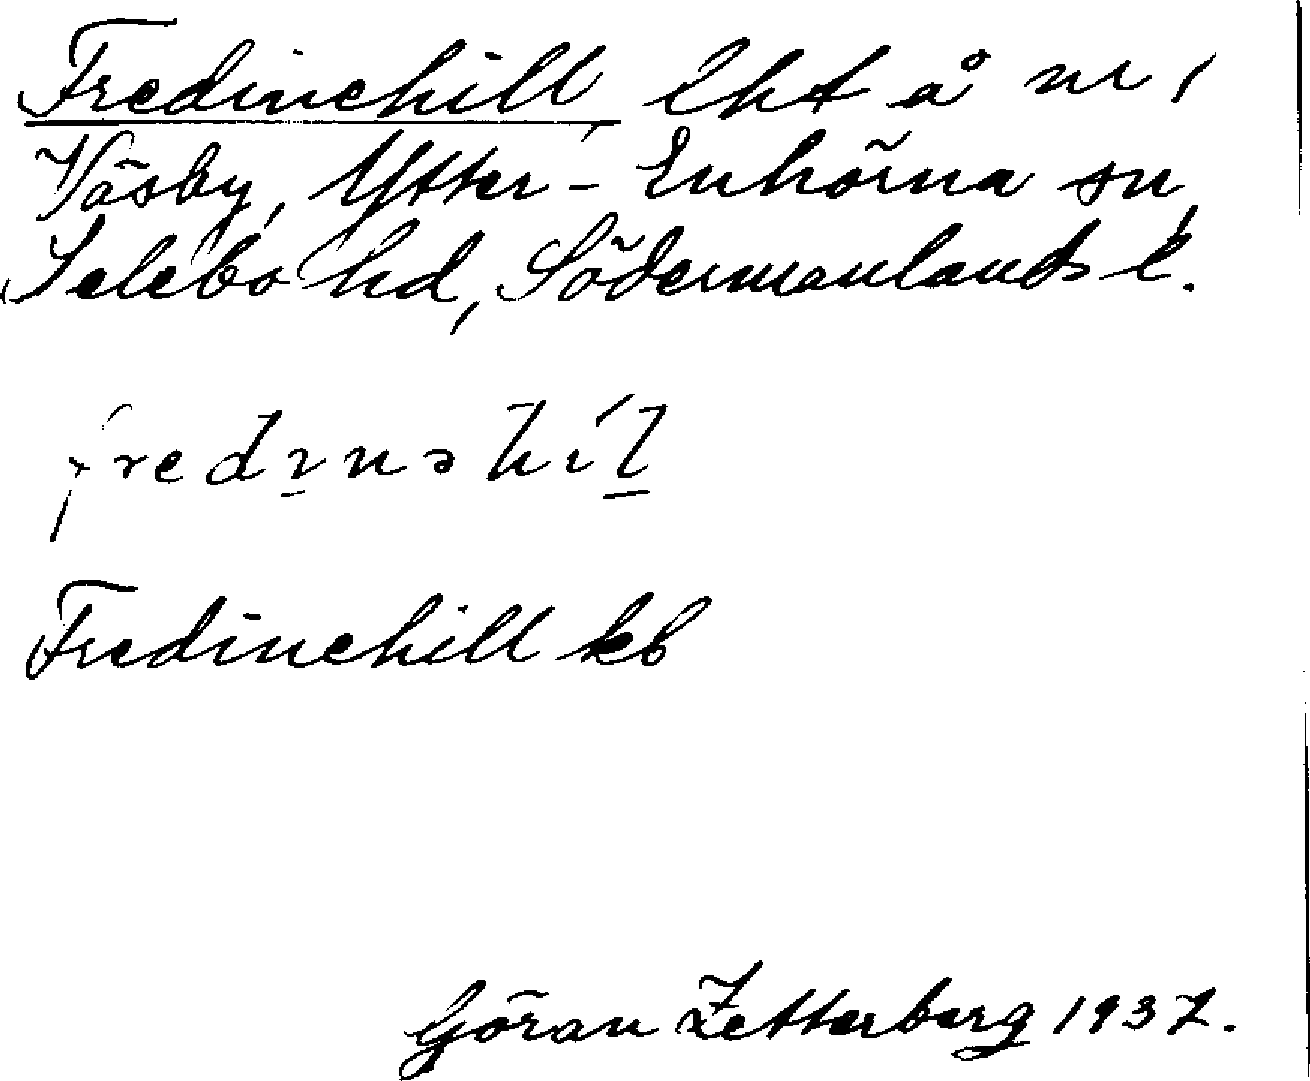 Fredinehill, lht å nr 1
Väsby, Ytter-Enhörna sn,
Selebo hd, Södermanlands l.
fredɪnəhíl
Fredinehill kb
Göran Zetterberg 1937.